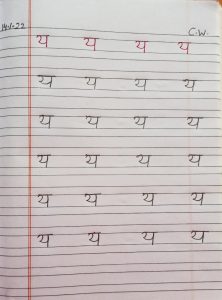 14-1-22 C.W.
य य य य
य य य य
य य य य
य य य य
य य य य
य य य य